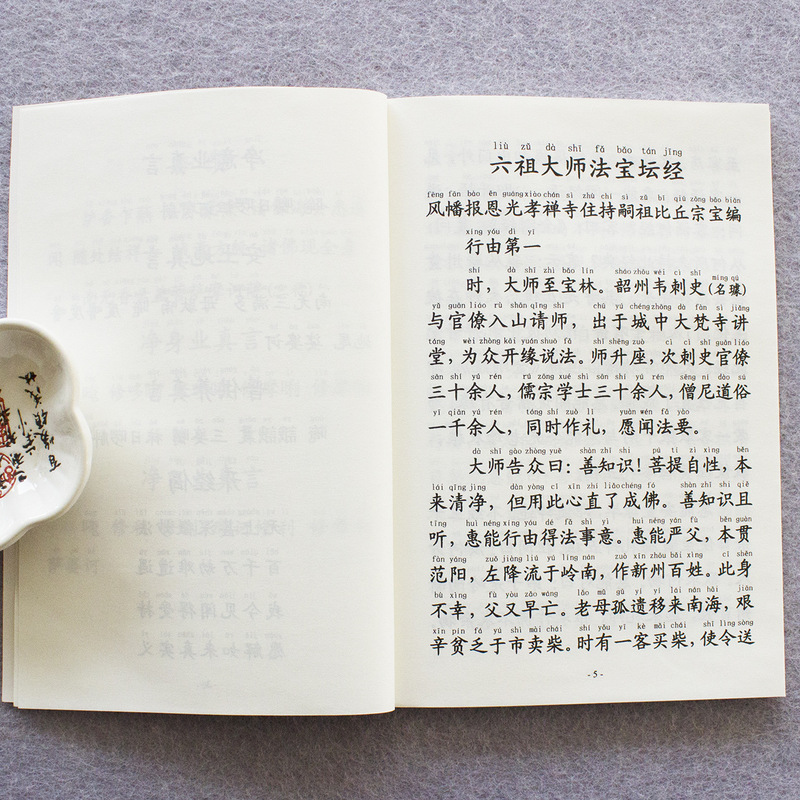 liù zǔ dà shī fǎ bǎo tán jīng
六祖大师法宝坛经
fēng fān bào ēn guāng xiào chán sì zhù chí sì zǔ bǐ qiū zōng bǎo biān
风幡报恩光孝禅寺住持嗣祖比丘宗宝编
xíng yóu dì yī
行由第一
shí dà shī zhì bǎo lín sháo zhōu wéi cì shǐ míng qú
时，大师至宝林。韶州韦刺史(名璩)
yǔ guān liáo rù shān qǐng shī chū yú chéng zhōng dà fàn sì jiǎng
与官僚入山请师，出于城中大梵寺讲
táng wèi zhòng kāi yuán shuō fǎ shī shēng zuò cì cì shǐ guān liáo
堂，为众开缘说法。师升座，次刺史官僚
sān shí yú rén rú zōng xué shì sān shí yú rén sēng ní dào sú
三十余人，儒宗学士三十余人，僧尼道俗
yī qiān yú rén tóng shí zuò lǐ yuàn wén fǎ yào
一千余人，同时作礼，愿闻法要。
dà shī gào zhòng yuē shàn zhī shí pú tí zì xìng běn
大师告众曰：善知识！菩提自性，本
lái qīng jìng dàn yòng cǐ xīn zhí liǎo chéng fó shàn zhī shí qiě
来清净，但用此心直了成佛。善知识且
tīng huì néng xíng yóu dé fǎ shì yì huì néng yán fù běn guàn
听，惠能行由得法事意。惠能严父，本贯
fàn yáng zuǒ jiàng liú yú lǐng nán zuò xīn zhōu bǎi xìng cǐ shēn
范阳，左降流于岭南，作新州百姓。此身
bú xìng fù yòu zǎo wáng lǎo mǔ gū yí yí lái nán hǎi jiān
不幸，父又早亡。老母孤遗移来南海，艰
xīn pín fá yú shì mài chái shí yǒu yī kè mǎi chái shǐ lìng sòng
辛贫乏于市卖柴。时有一客买柴，使令送
- 5 -